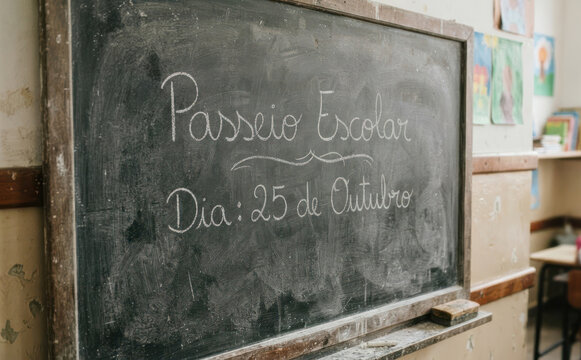 Passeio Escolar
Dia: 25 de Outubro